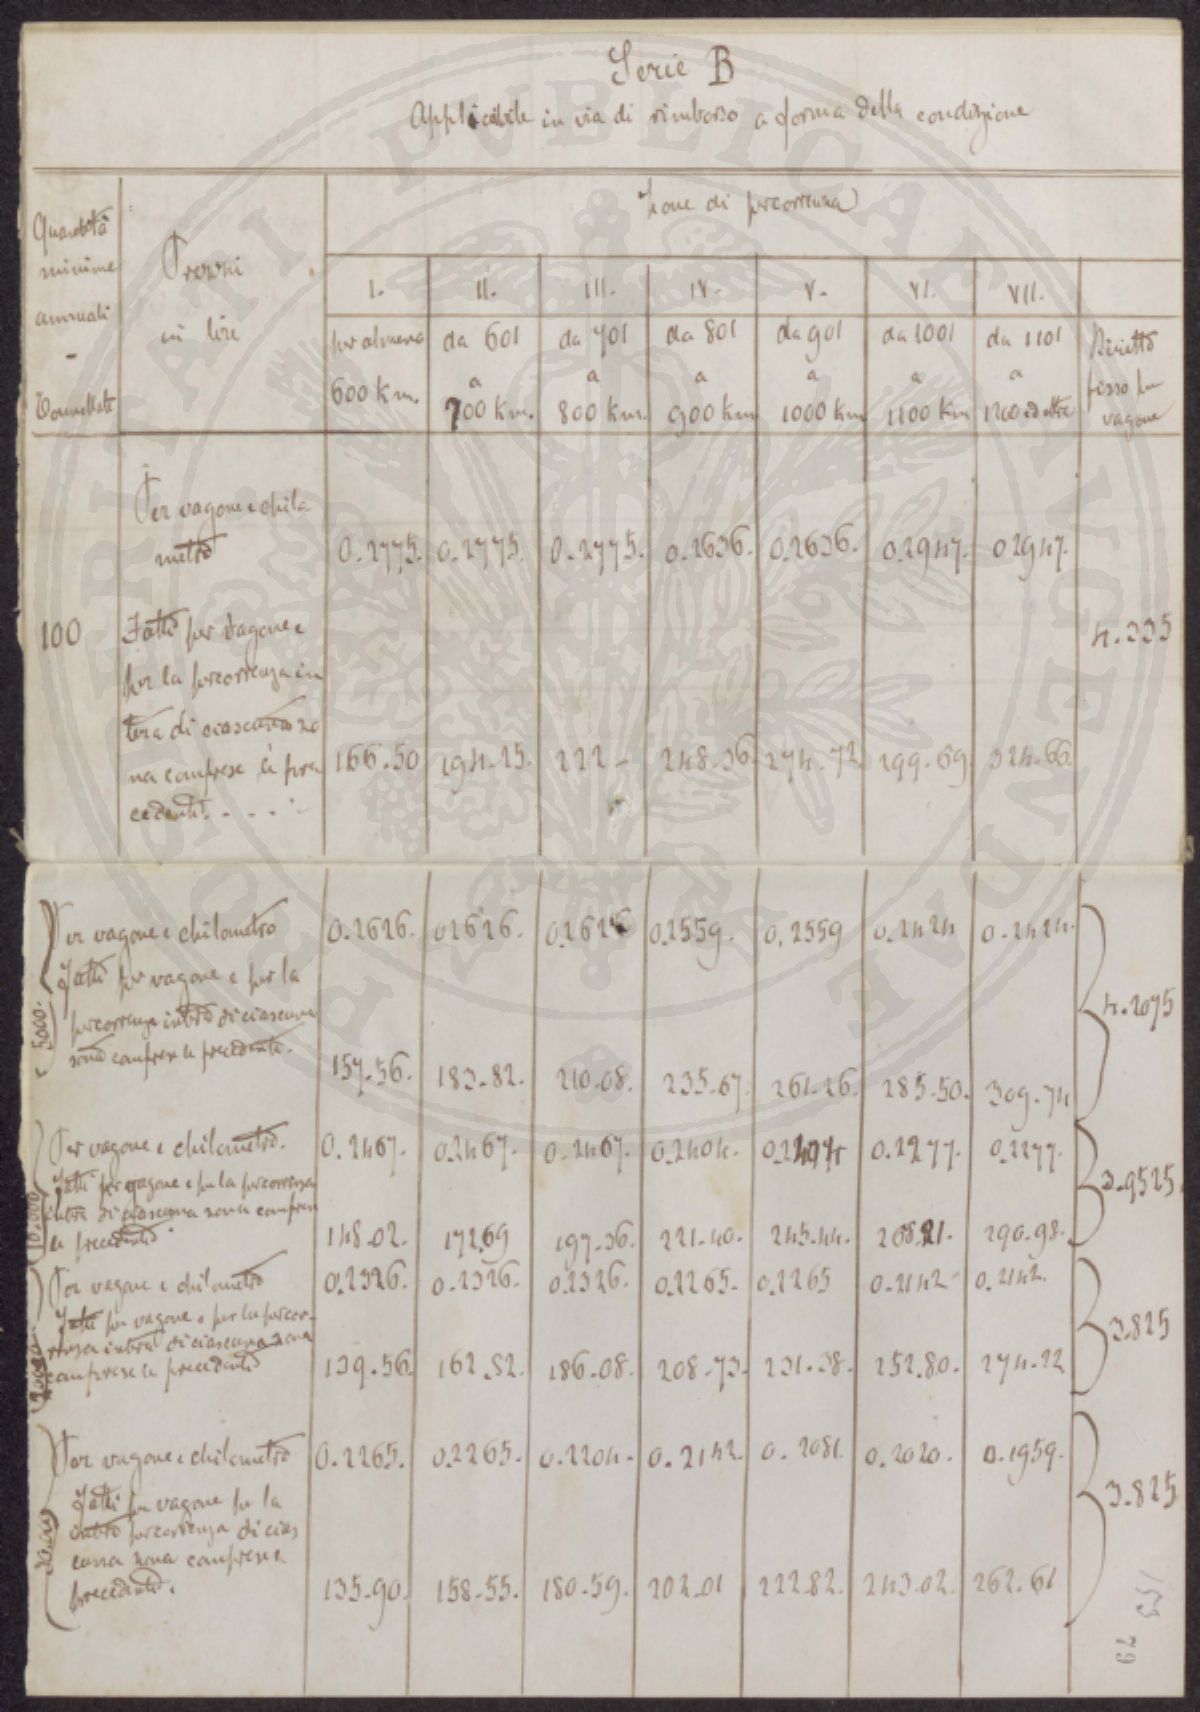 Serie B
Applicabile in via di rimborso a forma della condizione
Zone di percorrenza
Quantità
minime
annuali
-
Tonnellate
Prezzi
in lire
I. II. III. IV. V. VI. VII.
per almeno da 601 da 701 da 801 da 901 da 1001 da 1101 Diritto
a a a a a a fisso per
600 Km. 700 Km. 800 Km. 900 Km 1000 Km 1100 Km 1200 ed oltre vagone
Per vagone e chilo
metro 0.2775. 0.2775. 0.2775. 0.2636. 0.2636. 0.2947. 0.2947.
100 4.335
Fatti per vagone e
per la percorrenza in
tera di ciascuna zo
na comprese le pre 166.50 194.25. 222- 248.36 274.72 299.69 324.66
cedenti. - - - -
Per vagone e chilometro 0.2626. 0.2626. 0.2626 0.2559. 0.2559 0.2424 0.2424.
5000. Fatti per vagone e per la
percorrenza intera di ciascuna 4.2075
zona comprese le precedenti. 157-56. 183-82. 210-08. 235-67. 261-26. 285-50. 309-74
Per vagone e chilometro. 0.2467. 0.2467. 0.2467. 0.2404. 0.2404 0.2277. 0.2277.
10.000 Fatti per vagone e per la percorrenza 3.9525
intera di ciascuna zona comprese
le precedenti 148-02. 172.69 197-36. 221-40. 245-44. 268.21. 290-98.
Per vagone e chilometro 0.2326. 0.2326. 0.2326. 0.2265. 0.2265 0.2142- 0.2142.
Fatti per vagone e per la percor-
renza intera di ciascuna zona 3.825
comprese le precedenti 139-56. 162.82. 186-08. 208-73. 231-38. 252.80. 274-22
Per vagone e chilometro 0.2265. 0.2265. 0.2204- 0.2142. 0.2081. 0.2020. 0.1959.
Fatti per vagone per la 3.825
intera percorrenza di cias
cuna zona comprese le
precedenti. 135-90. 158-55. 180-59. 202-01 222.82. 243-02. 262.61
79
PRIVATI PUBLICAE